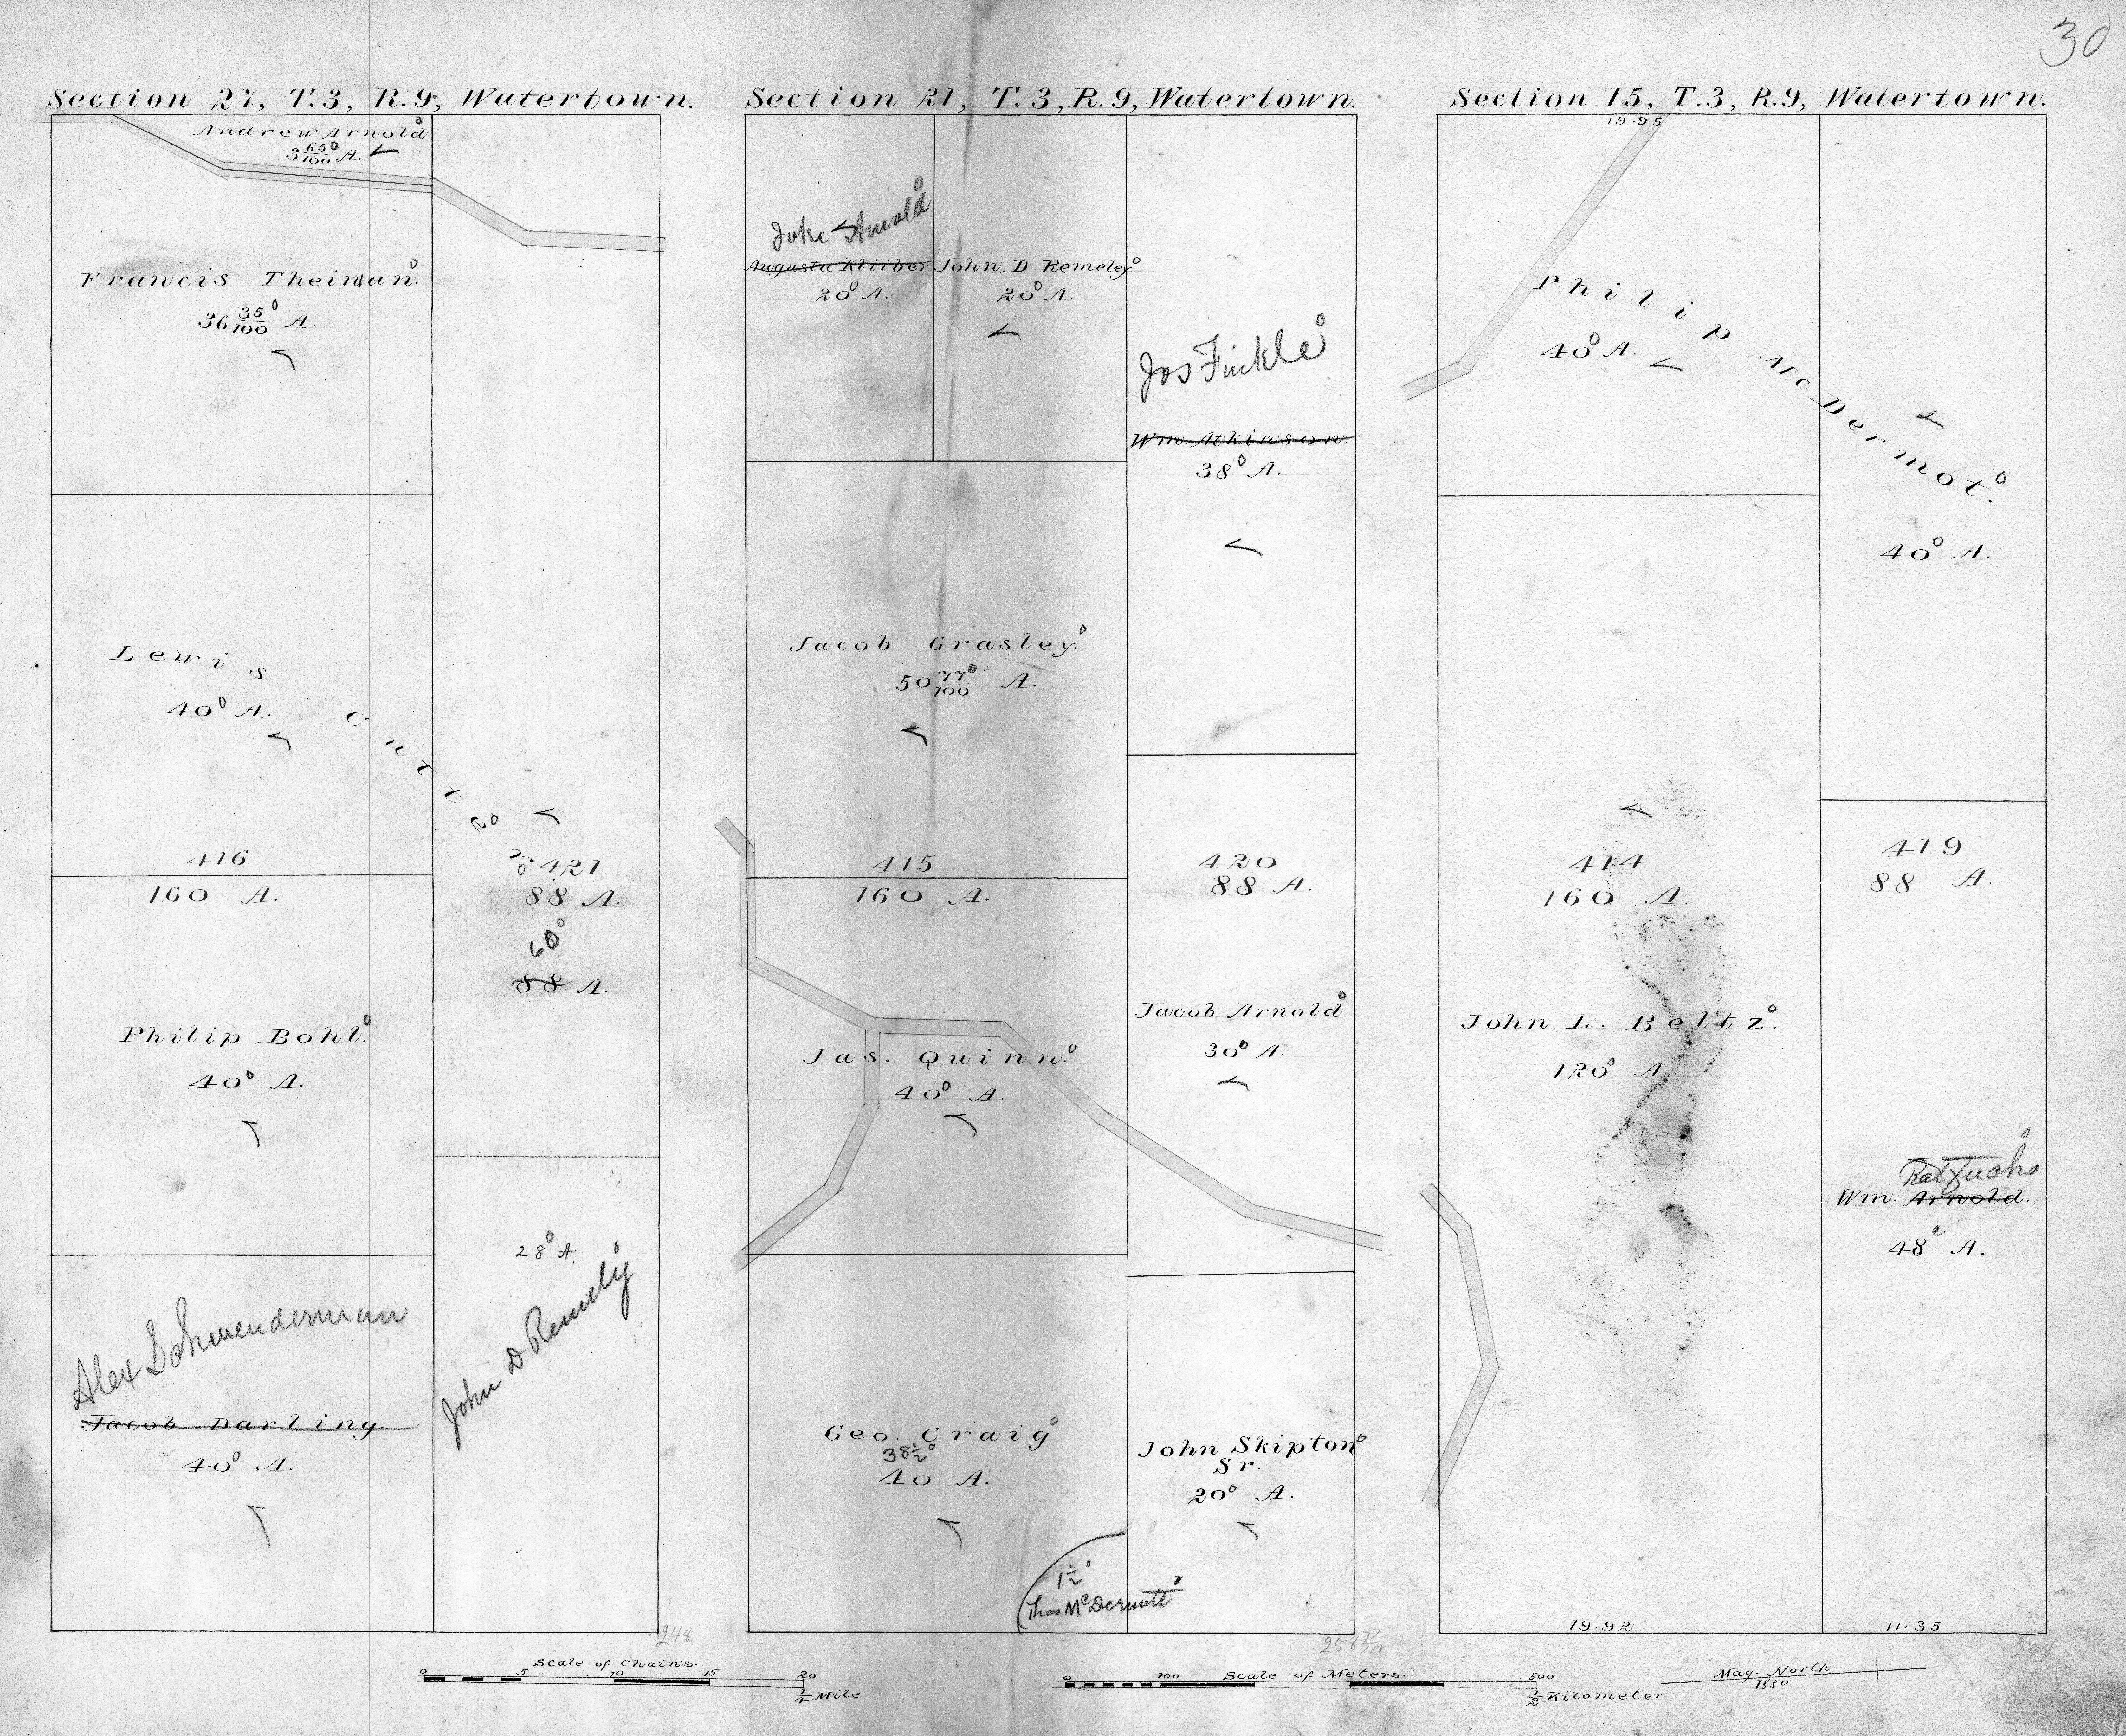 30
Section 27, T.3, R.9, Watertown.
Andrew Arnold
3 65/100 A.
Francis Theiman.
36 35/100 A.
Lewis Cutte
40 A.
416
160 A.
421
88 A.
60
88 A.
Philip Bohl.
40 A.
28 A.
John D Remely
Alex Schwenderman
Jacob Darling.
40 A.
248
Section 21, T.3, R.9, Watertown.
Jake Arnold
Augusta Kliiber
20 A.
John D. Remeley
20 A.
Jos Finkle
Wm. Atkinson.
38 A.
Jacob Grasley.
50 77/100 A.
415
160 A.
420
88 A.
Jacob Arnold
30 A.
Jas. Quinn.
40 A.
Geo. Craig
38 1/2
40 A.
John Skipton
Sr.
20 A.
1 1/2
Thos McDermott
258 77/100
Section 15, T.3, R.9, Watertown.
19.95
Philip McDermot.
40 A.
40 A.
414
160 A.
419
88 A.
John L. Beltz.
120 A.
Fuchs
Wm. Arnold.
48 A.
19.92
11.35
248
Scale of Chains.
0 5 10 15 20
1/4 Mile
Scale of Meters.
0 100 500
1/2 Kilometer
Mag. North.
1880